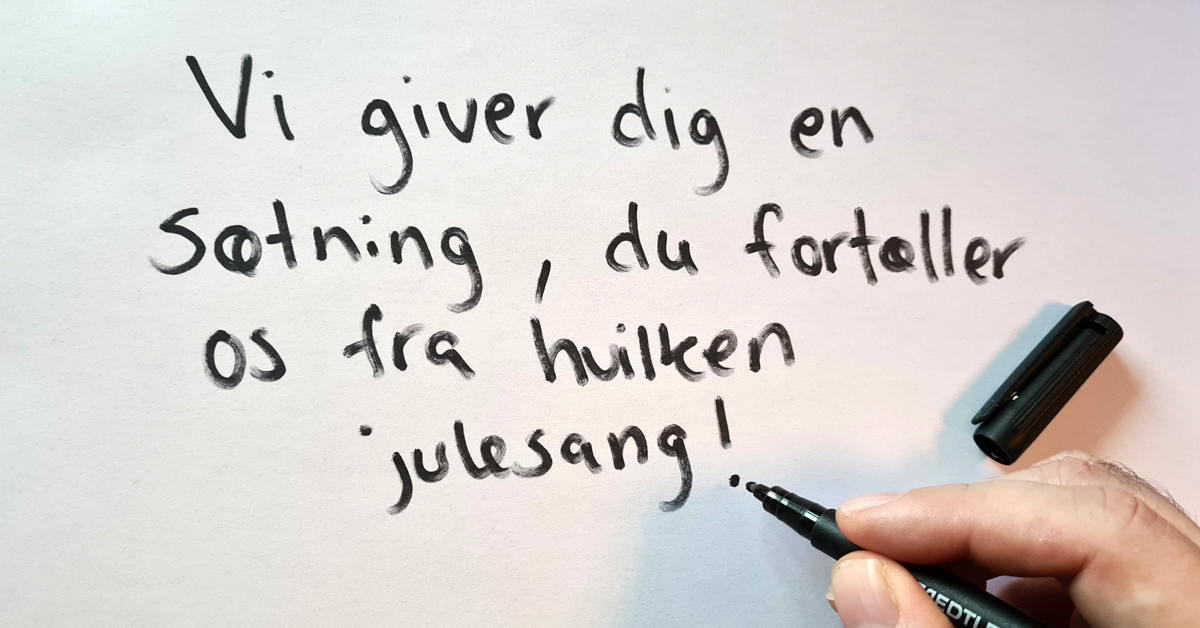 Vi giver dig en
sætning, du fortæller
os fra hvilken
julesang!